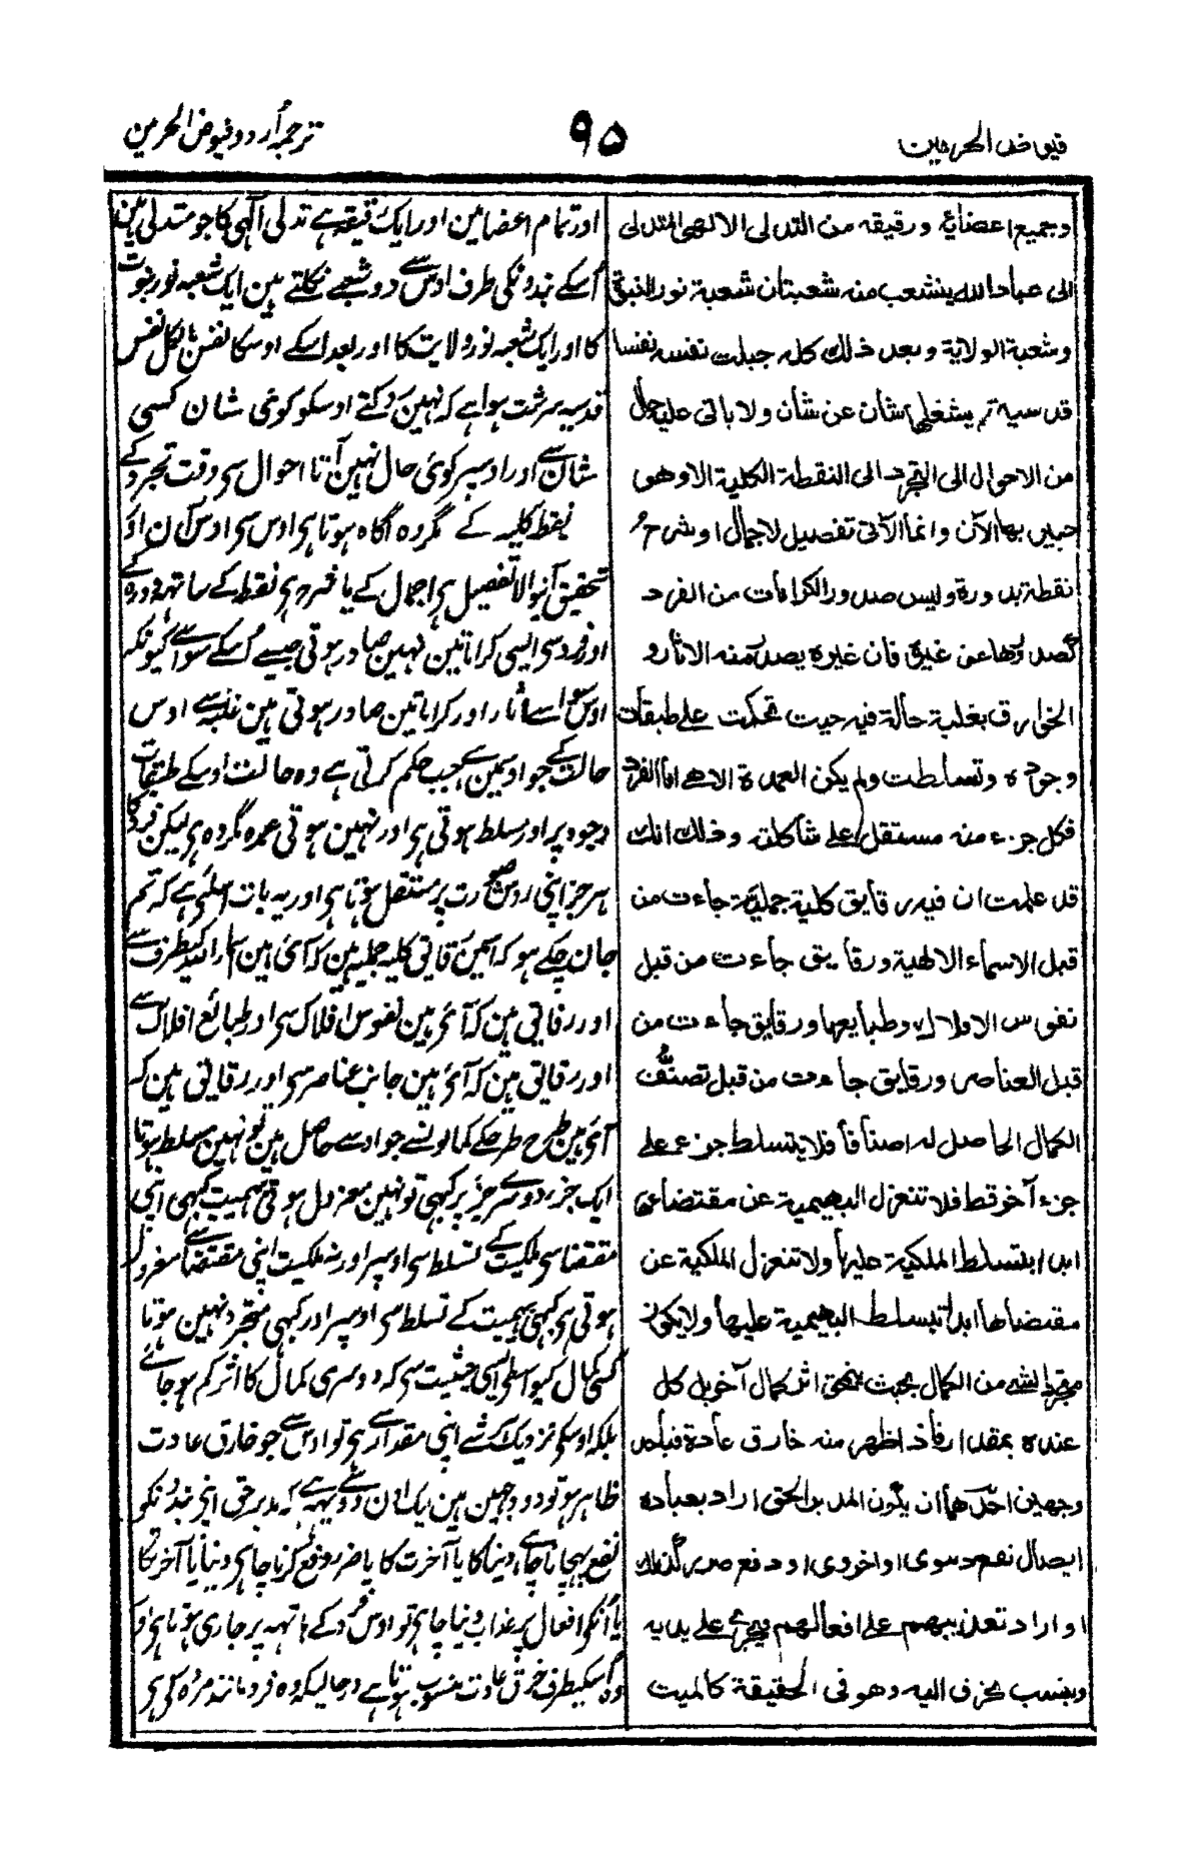 فيوض الحرمين
٩٥
ترجمہ اُردو فیوض الحرمین
وجميع اعضايه ورقيقه من التدلى الالهى المتدلى
الى عباد الله ينشعب منه شعبتان شعبة نور النبوة
وشعبة الولاية وبعد ذلك كله جبلت نفسه نفسا
قدسية لم يشغلها شان عن شان ولا ياتى عليه حال
من الاحوال الى التجرد الى النقطة الكلية الا وهو
خبير بها الآن وانما الآتى تفصيل لاجمال او شرح
نقطة بدورة وليس صدور الكرامات من الفرد
كصدورها عن غيره فان غيره يصدر منه الاثار و
الخوارق بغلبة حالة فيه حيث تحكمت على طبقات
وجوده وتسلطت ولم يكن العمدة الا هى اما الفرد
فكل جزء منه مستقل على شاكلته وذلك انك
قد علمت ان فيه رقايق كلية جملية جاءت من
قبل الاسماء الالهية ورقايق جاءت من قبل
نفوس الافلاك وطبايعها ورقايق جاءت من
قبل العناصر ورقايق جاءت من قبل تصنف
الكمال الحاصل له اصنافا فلا يتسلط جزء على
جزء آخر قط فلا تنعزل البهيمية عن مقتضاها
ابدا بتسلط الملكية عليها ولا تنعزل الملكية عن
مقتضاها ابدا بتسلط البهيمية عليها ولا يكون
متجردا لشے من الكمال بحيث ينمحى اثر كمال آخر بل كل
عنده بمقدار فاذا ظهر منه خارق عادة فباحد
وجهين احدهما ان يكون المدبر الحق اراد بعباده
ايصال نفع دنيوى او اخروى او دفع ضرر كذلك
او اراد تعذيبهم على افعالهم فيجرى على يديه
وينسب الخرق اليه وهو فى الحقيقة كالميت
اور تمام اعضا مین اور ایک رقیقہ ہے تدلی الٰہی کا جو متدلی ہین
اُسکے بندونکی طرف اوس سے دو شعبے نکلتے ہین ایک شعبہ نور نبوت
کا اور ایک شعبہ نور ولایت کا اور بعد اسکے اوسکا نفس بالکل نفس
قدسیہ سرشت ہوا ہے کہ نہین روکتے اوسکو کوئی شان کسی
شان سے اور اوسپر کوئی حال نہین آتا احوال سے وقت تجرد کے
نقطہ کلیہ کے مگر وہ آگاہ ہوتا ہے اوس سے
تحقیق آنیوالا تفصیل ہے اجمال کے یا شرح ہے نقطہ کے ساتھ دورہ کے
اور فرد سے ایسی کراماتین نہین صادر ہوتی جیسے اُسکے سوا سے کیونکہ
اوس سوا سے آثار اور کراماتین صادر ہوتی ہین غلبہ سے اوس
حالت کے جو اوسمین ہے جب حکم کرتی ہے وہ حالت اوسکے طبقات
وجود پر اور مسلط ہوتی ہے اور نہین ہوتی عمدہ مگر وہ ہے لیکن فرد کا
ہر جز اپنی مستقل ہوتا ہے اور یہ بات اسلئے ہے کہ تم
جان چکے ہو کہ اسمین رقایق کلیہ جملیہ ہین کہ آئی ہین اسماء الٰہیہ کیطرف سے
اور رقایق ہین کہ آئی ہین نفوس افلاک سے اور طبائع افلاک سے
اور رقایق ہین کہ آئی ہین جانب عناصر سے اور رقایق ہین کہ
آئی ہین طرح طرح کے کمالونسے جو اوسے حاصل ہین تو نہین مسلط ہوتا
ایک جزء دوسرے جز پر کبھی تو نہین معزول ہوتی بہیمیت کبھی اپنی
مقتضا سے ملکیت کے تسلط سے اوسپر اور نہ ملکیت اپنی مقتضا سے معزول
ہوتی ہے کبھی بہیمیت کے تسلط سے اوسپر اور کبھی متجرد نہین ہوتا
کسی کمال کیواسطے ایسی حیثیت سے کہ دوسری کمال کا اثر کم ہو جائے
بلکہ اوسکی نزدیک ہر شے اپنی مقدار سے ہے تو اوس سے جو خارق عادت
ظاہر ہو تو دو وجہین ہین ایک ان دو سے یہ ہے کہ مدبر حق اپنی بندونکو
نفع پہچانا چاہے دنیا کا یا آخرت کا یا ضرر دفع کرنا چاہے دنیا یا آخرت کا
یا اُنکو افعال پر عذاب دینا چاہے تو اوس فرد کے ہاتھہ پر جاری ہوتا ہے اور
وہ اُسکیطرف خرق عادت منسوب ہوتا ہے درحالیکہ وہ فرد مانند مردہ کی ہے